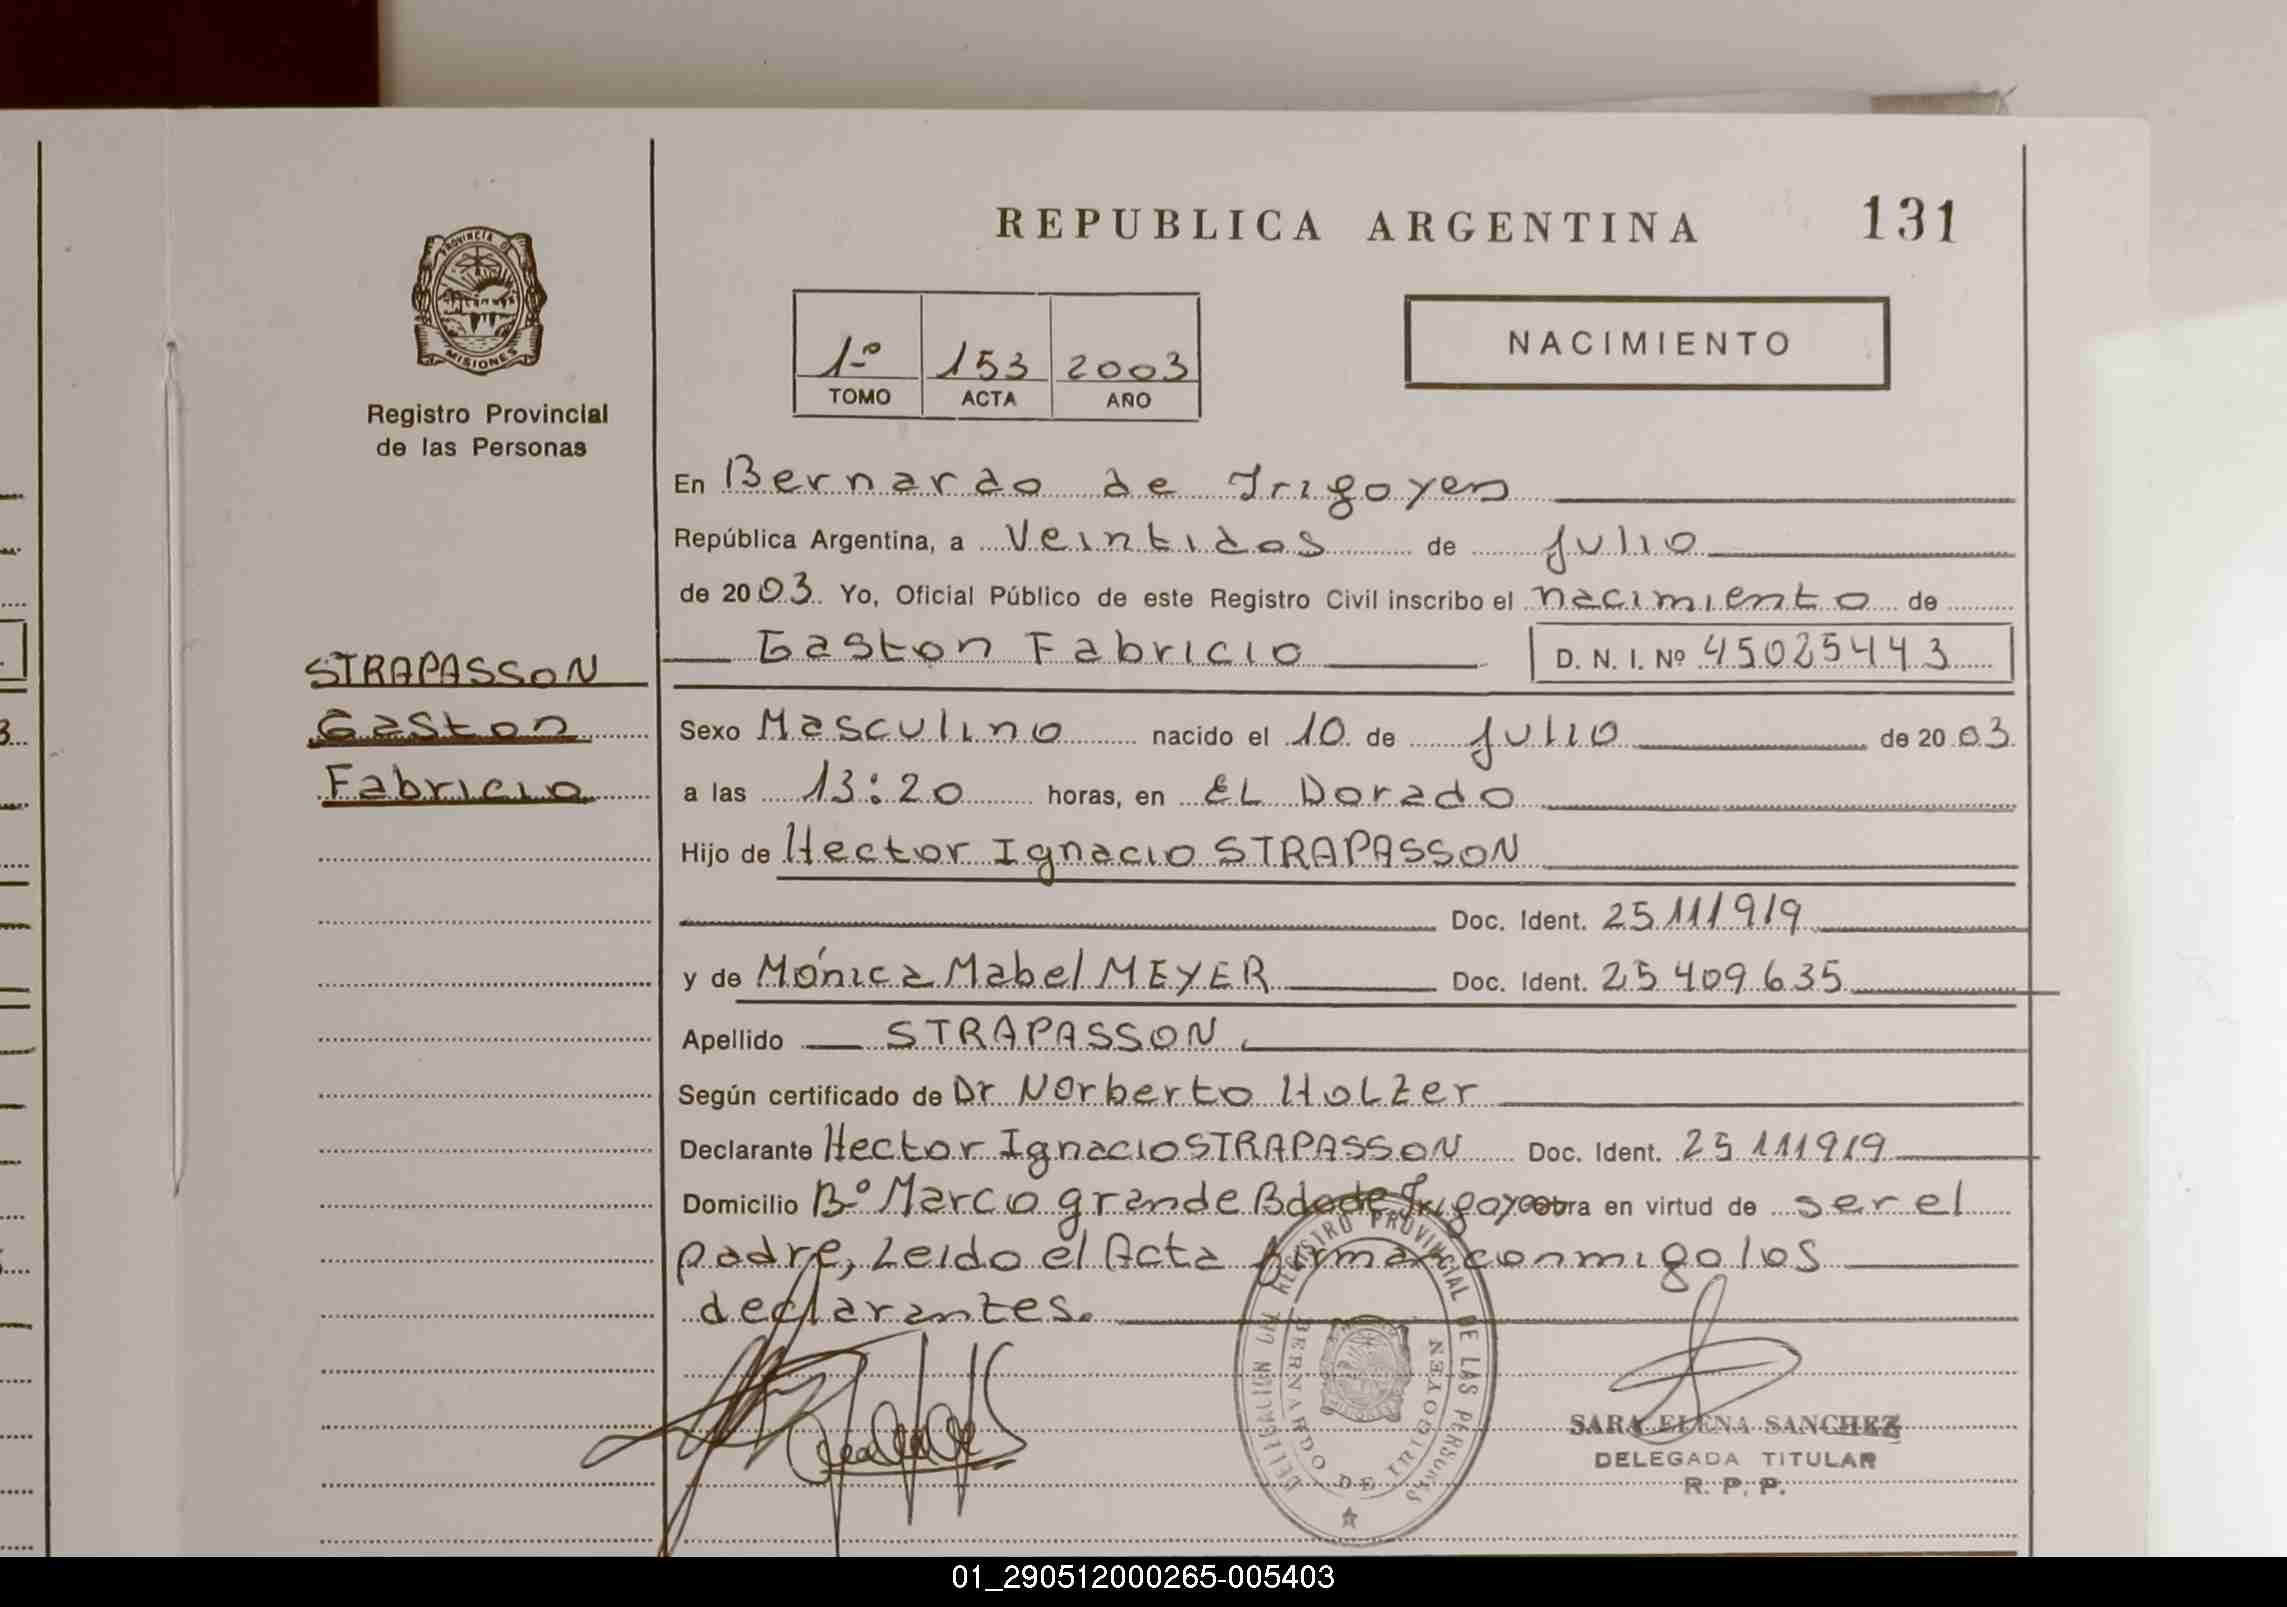 REPUBLICA ARGENTINA 131
PROVINCIA DE
MISIONES
Registro Provincial
de las Personas
NACIMIENTO
1º 153 2003
TOMO ACTA AÑO
En Bernardo de Irigoyen
República Argentina, a Veintidos de Julio
de 2003. Yo, Oficial Público de este Registro Civil inscribo el nacimiento de
Gaston Fabricio D. N. I. Nº 45025443
STRAPASSON
Gaston
Fabricio
Sexo Masculino nacido el 10 de Julio de 2003
a las 13:20 horas, en EL Dorado
Hijo de Hector Ignacio STRAPASSON
Doc. Ident. 25 111 919
y de Mónica Mabel MEYER Doc. Ident. 25 409 635
Apellido STRAPASSON
Según certificado de Dr Norberto HoLzer
Declarante Hector Ignacio STRAPASSON Doc. Ident. 25 111 919
Domicilio Bº Marco grande Bdo de Irigoyen obra en virtud de ser el
padre, Leido el Acta firman conmigo los
declarantes.
DELEGACION DEL REGISTRO PROVINCIAL DE LAS PERSONAS
BERNARDO DE IRIGOYEN
SARA ELENA SANCHEZ
DELEGADA TITULAR
R. P. P.
01_290512000265-005403